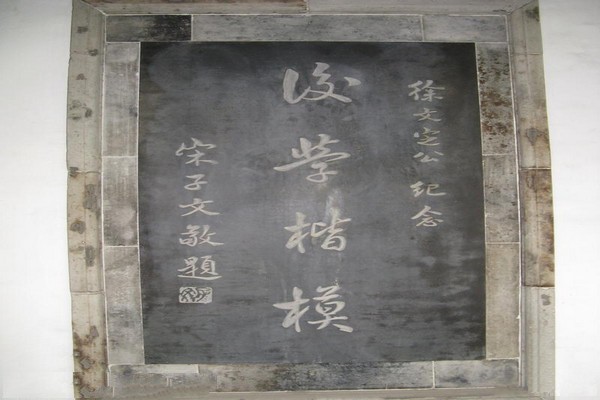 徐文定公纪念
後学楷模
宋子文敬题